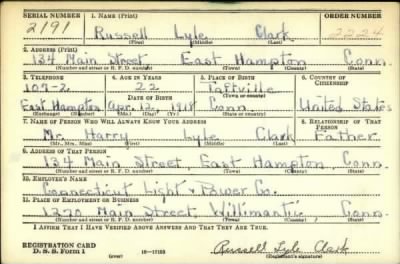 SERIAL NUMBER 1. NAME (Print) ORDER NUMBER
2191 Russell Lyle Clark 2224
(First) (Middle) (Last)
2. ADDRESS (Print)
134 Main Street East Hampton Conn.
(Number and street or R. F. D. number) (Town) (County) (State)
3. TELEPHONE 4. AGE IN YEARS 5. PLACE OF BIRTH 6. COUNTRY OF CITIZENSHIP
109-2 22 Taftville
DATE OF BIRTH (Town or county)
East Hampton Apr. 12, 1918 Conn. United States
(Exchange) (Number) (Mo.) (Day) (Yr.) (State or country)
7. NAME OF PERSON WHO WILL ALWAYS KNOW YOUR ADDRESS 8. RELATIONSHIP OF THAT PERSON
Mr. Harry Lyle Clark Father
(Mr., Mrs., Miss) (First) (Middle) (Last)
9. ADDRESS OF THAT PERSON
134 Main Street, East Hampton Conn.
(Number and street or R. F. D. number) (Town) (County) (State)
10. EMPLOYER'S NAME
Connecticut Light & Power Co.
11. PLACE OF EMPLOYMENT OR BUSINESS
1270 Main Street, Willimantic, Conn.
(Number and street or R. F. D. number) (Town) (County) (State)
I AFFIRM THAT I HAVE VERIFIED ABOVE ANSWERS AND THAT THEY ARE TRUE.
REGISTRATION CARD
D. S. S. Form 1 (over) 16—17105 Russell Lyle Clark
(Registrant's signature)